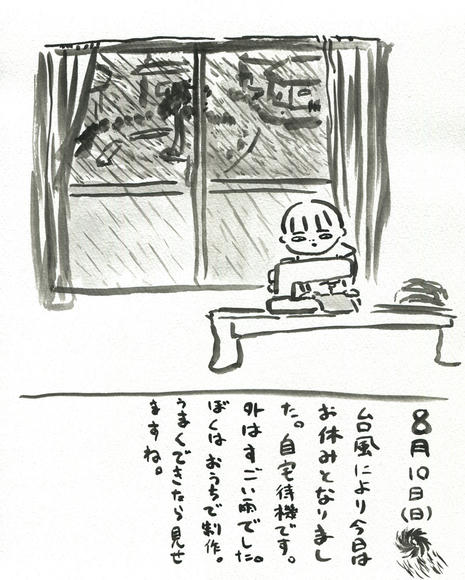 8月10日(日)
台風により今日は
お休みとなりまし
た。自宅待機です。
外はすごい雨でした。
ぼくはおうちで制作。
うまくできたら見せ
ますね。